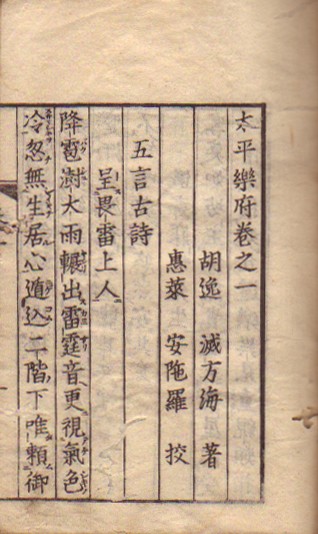 太平樂府卷之一
胡逸 滅方海 著
惠萊 安陁羅 挍
五言古詩
呈畏雷上人
降雹澍大雨轣出雷霆音更視氣色
冷忽無生居心逃込二階下唯頼御